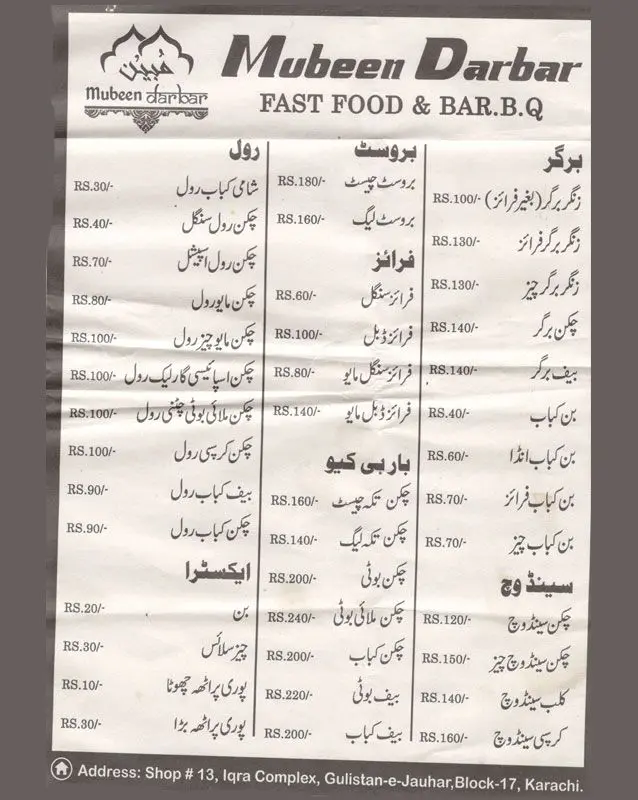 مُبین
Mubeen darbar
Mubeen Darbar
FAST FOOD & BAR.B.Q
برگر
زنگر برگر (بغیر فرائز) RS.100/-
زنگر برگر فرائز RS.130/-
زنگر برگر چیز RS.130/-
چکن برگر RS.140/-
بیف برگر RS.140/-
بن کباب RS.40/-
بن کباب انڈا RS.60/-
بن کباب فرائز RS.70/-
بن کباب چیز RS.70/-
سینڈوچ
چکن سینڈوچ RS.120/-
چکن سینڈوچ چیز RS.150/-
کلب سینڈوچ RS.140/-
کرسپی سینڈوچ RS.160/-
بروسٹ
بروسٹ چیسٹ RS.180/-
بروسٹ لیگ RS.160/-
فرائز
فرائز سنگل RS.60/-
فرائز ڈبل RS.100/-
فرائز سنگل مایو RS.80/-
فرائز ڈبل مایو RS.140/-
بار بی کیو
چکن تکہ چیسٹ RS.160/-
چکن تکہ لیگ RS.140/-
چکن بوٹی RS.200/-
چکن ملائی بوٹی RS.240/-
چکن کباب RS.200/-
بیف بوٹی RS.220/-
بیف کباب RS.200/-
رول
شامی کباب رول RS.30/-
چکن رول سنگل RS.40/-
چکن رول اسپیشل RS.70/-
چکن مایو رول RS.80/-
چکن مایو چیز رول RS.100/-
چکن اسپائیسی گارلیک رول RS.100/-
چکن ملائی بوٹی چٹنی رول RS.100/-
چکن کرسپی رول RS.100/-
بیف کباب رول RS.90/-
چکن کباب رول RS.90/-
ایکسٹرا
بن RS.20/-
چیز سلائس RS.30/-
پوری پراٹھہ چھوٹا RS.10/-
پوری پراٹھہ بڑا RS.30/-
Address: Shop # 13, Iqra Complex, Gulistan-e-Jauhar,Block-17, Karachi.